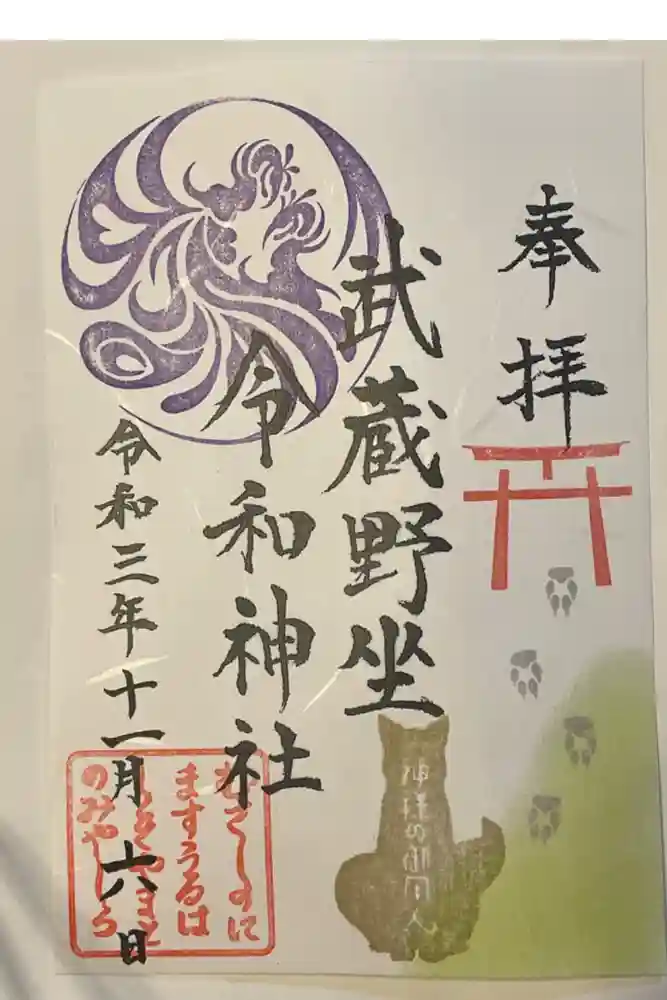 奉拝
武蔵野坐
令和神社
令和三年十一月六日
神様の
むさしのに
ますうるは
しきやまと
のみやしろ